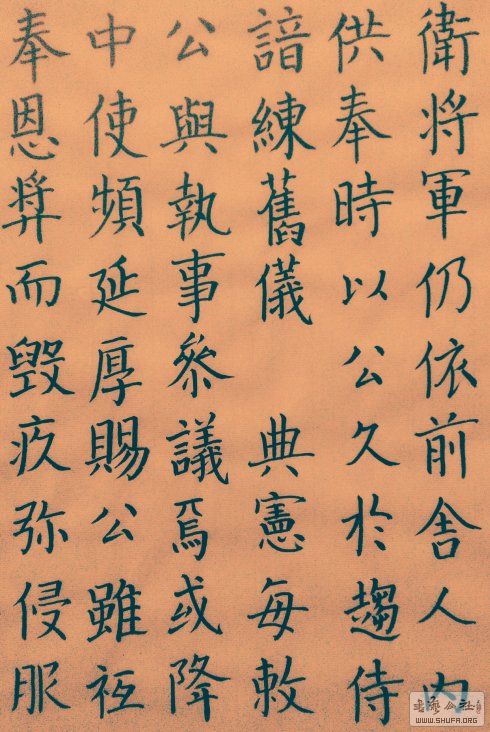 衛將軍仍依前舍人內
供奉時以公久於趨侍
諳練舊儀 典憲每敕
公與執事參議焉或降
中使頻延厚賜公雖祗
奉恩獎而毀疚弥侵服
書法公社
WWW.SHUFA.ORG